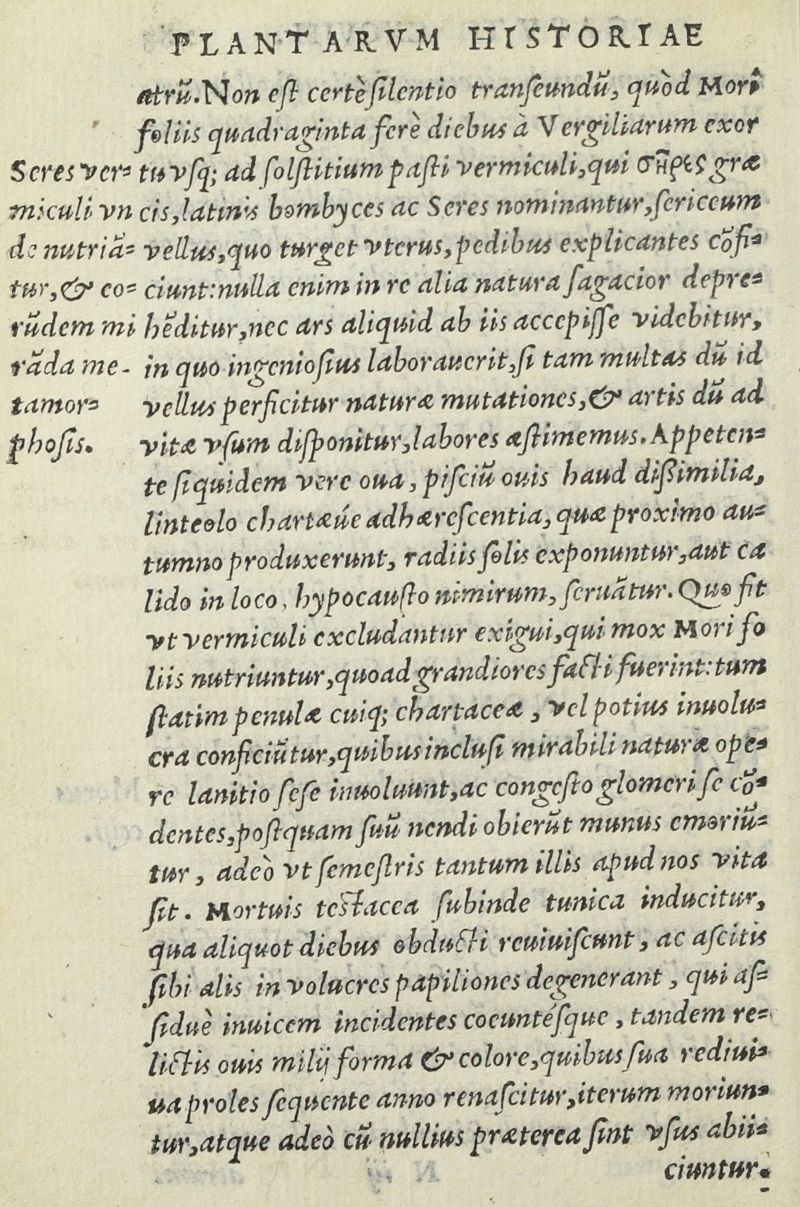 PLANTARVM HISTORIAE
atrũ. Non eſt certè ſilentio tranſeundũ, quòd Mori
foliis quadraginta ferè diebus à Vergiliarum exor
tu vſq; ad ſolſtitium paſti vermiculi, qui σῆρες græ
cis, latinis bombyces ac Seres nominantur, ſericeum
vellus, quo turget vterus, pedibus explicantes cõfi-
ciunt: nulla enim in re alia natura ſagacior depre-
hẽditur, nec ars aliquid ab iis accepiſſe videbitur,
in quo ingenioſius laborauerit, ſi tam multas dũ id
vellus perficitur naturæ mutationes, & artis dũ ad
vitæ vſum diſponitur, labores æſtimemus. Appeten-
te ſiquidem vere oua, piſciũ ouis haud diſſimilia,
linteolo chartæúe adhæreſcentia, quæ proximo au-
tumno produxerunt, radiis ſolis exponuntur, aut ca
lido in loco, hypocauſto nimirum, ſeruãtur. Quo fit
vt vermiculi excludantur exigui, qui mox Mori fo
liis nutriuntur, quoad grandiores facti fuerint: tum
ſtatim penulæ cuiq; chartaceæ, vel potius inuolu-
cra conficiũtur, quibus incluſi mirabili naturæ ope-
re lanitio ſeſe inuoluunt, ac congeſto glomeri ſe cõ-
dentes, poſtquam ſuũ nendi obierũt munus emoriũ-
tur, adeò vt ſemeſtris tantum illis apud nos vita
ſit. Mortuis teſtacea ſubinde tunica inducitur,
qua aliquot diebus obducti reuiuiſcunt, ac aſcitis
ſibi alis in volucres papiliones degenerant, qui aſ-
ſiduè inuicem incidentes coeuntéſque, tandem re-
lictis ouis milij forma & colore, quibus ſua rediui-
ua proles ſequente anno renaſcitur, iterum moriun-
tur, atque adeò cũ nullius præterea ſint vſus abii-
ciuntur.
Seres ver-
miculi vn
de nutriã-
tur, & eo-
rũdem mi
rãda me-
tamor-
phoſis.